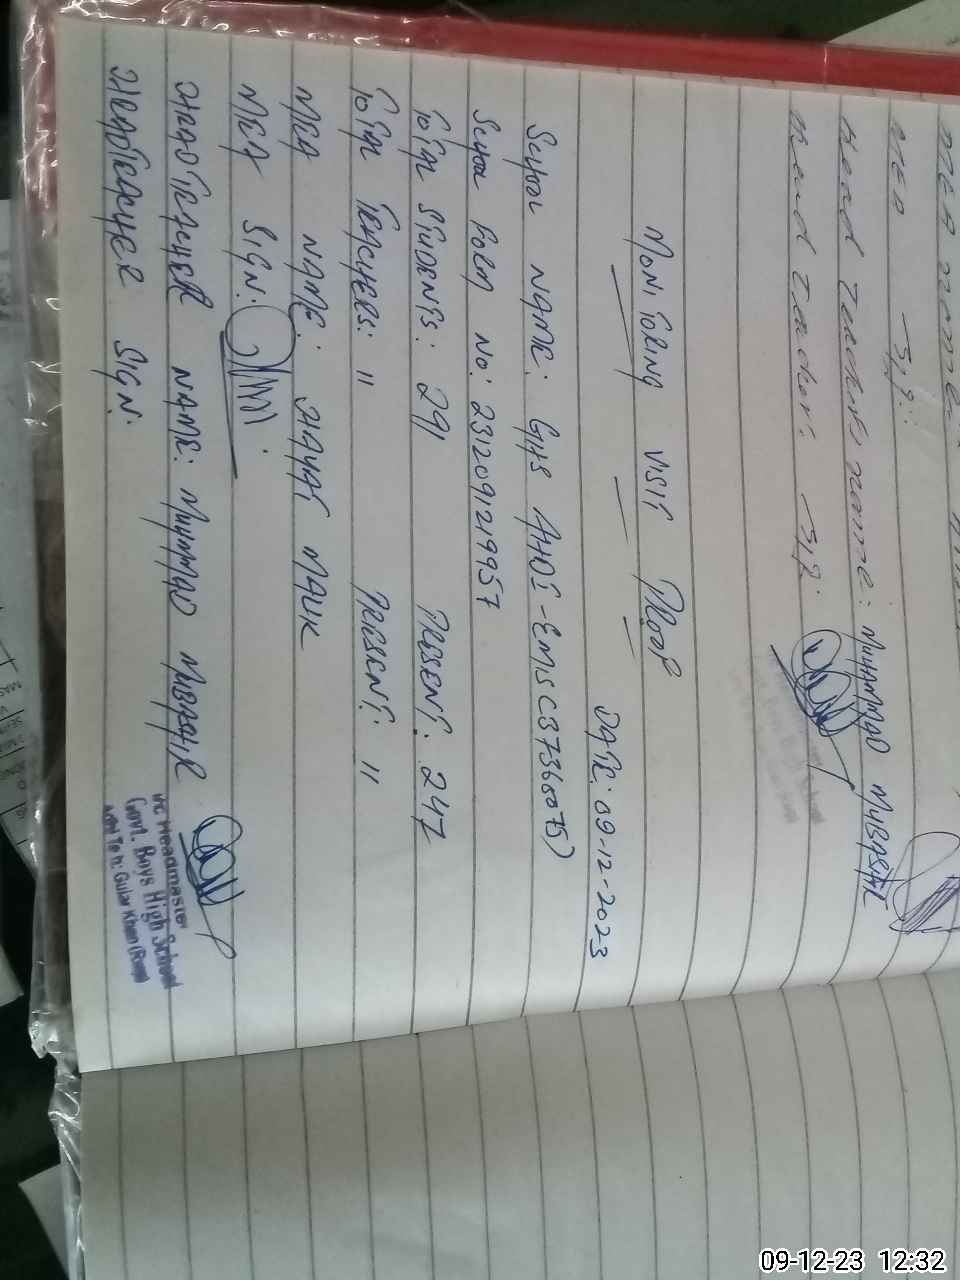 Head Teacher name: MUHAMMAD MUBASHIR
Head Teacher:
MONITORING VISIT PROOF
DATE: 09-12-2023
SCHOOL NAME: GHS AHDI - EMIS C37360075)
SCHOOL FORM NO: 2312091219957
TOTAL STUDENTS: 291 PRESENT: 247
TOTAL TEACHERS: 11 PRESENT: 11
MEA NAME: HAYAT MALIK
MEA SIGN:
HEADTEACHER NAME: MUHMMAD MUBASHIR
HEADTEACHER SIGN:
I/C Headmaster
Govt. Boys High School
Ahdi Teh: Gujar Khan (Rwp)
09-12-23 12:32